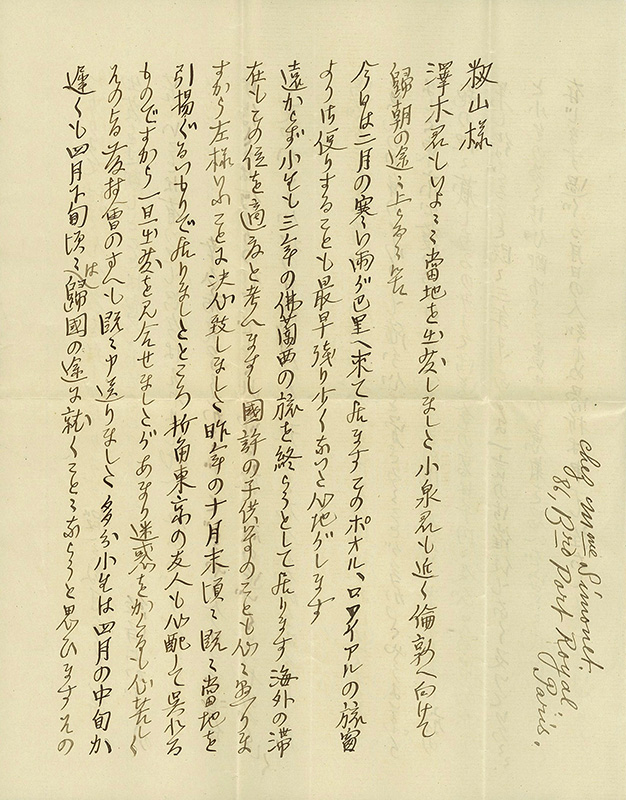 Chez Mme Simonet.
86, Brd Port Royal
Paris.
山様
澤木君もいよ〱當地を出發しました小泉君も近く倫敦へ向けて
歸朝の途に上らるゝ筈
今日は二月の寒い雨が巴里へ来て居ますこのポオル、ロワイアルの旅窓
より御便りすることも最早残り少くなつた心地がします
遠からず小生も三年の佛蘭西の旅を終らうとして居ります海外の滞
在もこの位を適度と考へますし國許の子供等のことも心に懸りま
すから左様いふことに決心致しました昨年の十月末頃に既に當地を
引揚ぐるつもりで居りましたところ折角東京の友人も心配して呉れる
ものですから一旦出發を見合せましたがあまり迷惑をかくるも心苦しく
その會の方へも既に申送りました多分小生は四月の中旬か
遅くも四月下旬頃には歸國の途に就くことゝならうと思ひますその